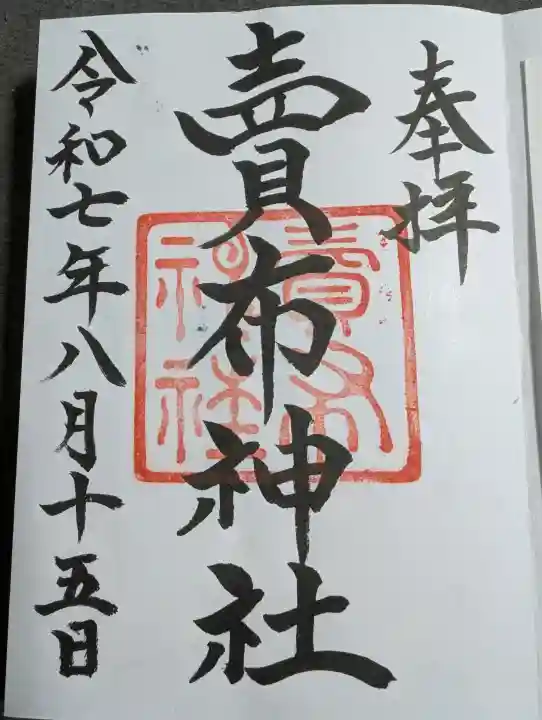 奉拝
賣布神社
賣布
神社
令和七年八月十五日